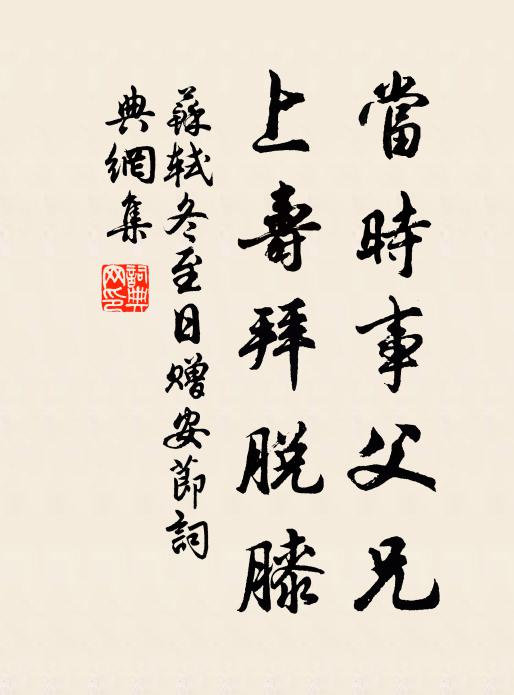 當時事父兄
上壽拜脫膝
蘇軾冬至日贈安節詞
典網集
詞典網印